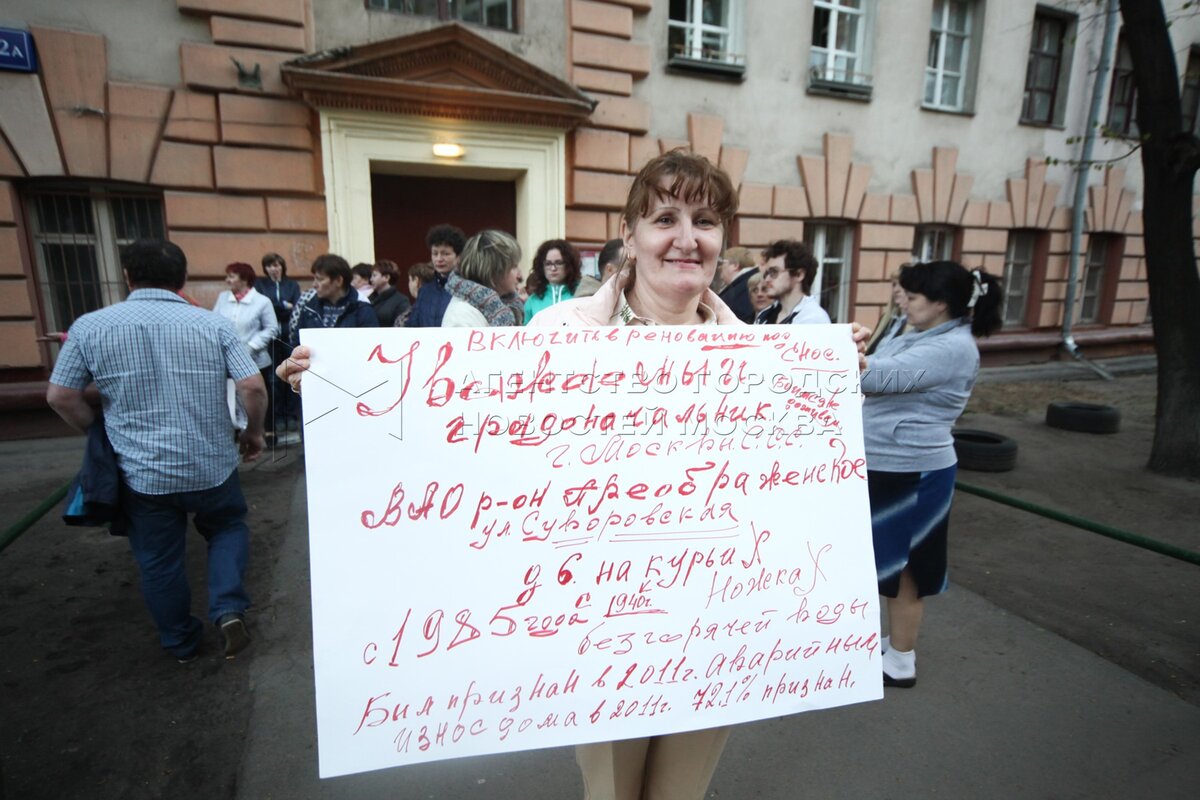 2А
Включите в реновацию под
Снос.
Уважаемый
градоначальник
г. Москвы С.С.С.
ВАО р-он Преображенское
ул. Суворовская
д 6. на курьих
ножках
с 1985 года с 1940г.
без горячей воды
Был признан в 2011г. Аварийным
износ дома в 2011г. 72,1% признан.
АГЕНТСТВО ГОРОДСКИХ
НОВОСТЕЙ МОСКВА